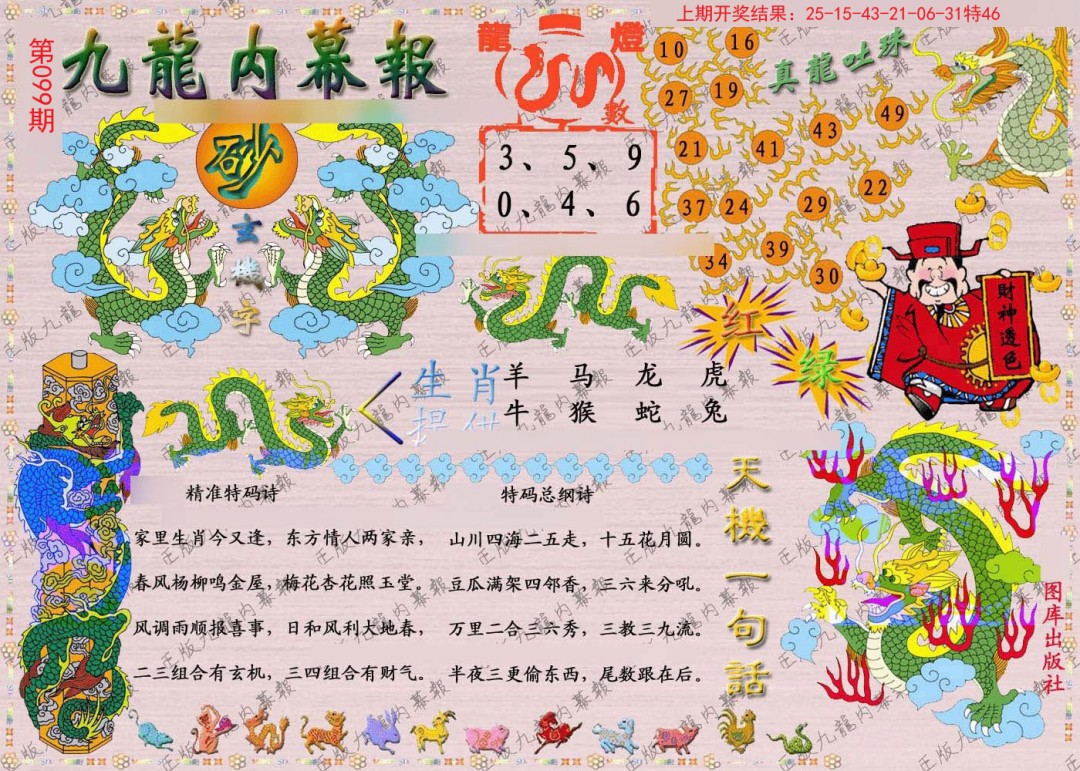 上期开奖结果：25-15-43-21-06-31特46
第099期
九龍内幕報
龍燈數
3、5、9
0、4、6
真龍吐珠
10
16
27
19
49
43
21
41
22
37
24
29
39
34
30
砂
玄機字
财神透色
红
绿
生肖提供
羊 马 龙 虎
牛 猴 蛇 兔
精准特码诗
家里生肖今又逢，东方情人两家亲，
春风杨柳鸣金屋，梅花杏花照玉堂。
风调雨顺报喜事，日和风利大地春，
二三组合有玄机，三四组合有财气。
特码总纲诗
山川四海二五走，十五花月圆。
豆瓜满架四邻香，三六来分吼。
万里二合三六秀，三教三九流。
半夜三更偷东西，尾数跟在后。
天機一句話
图库出版社
正版九龍内幕報